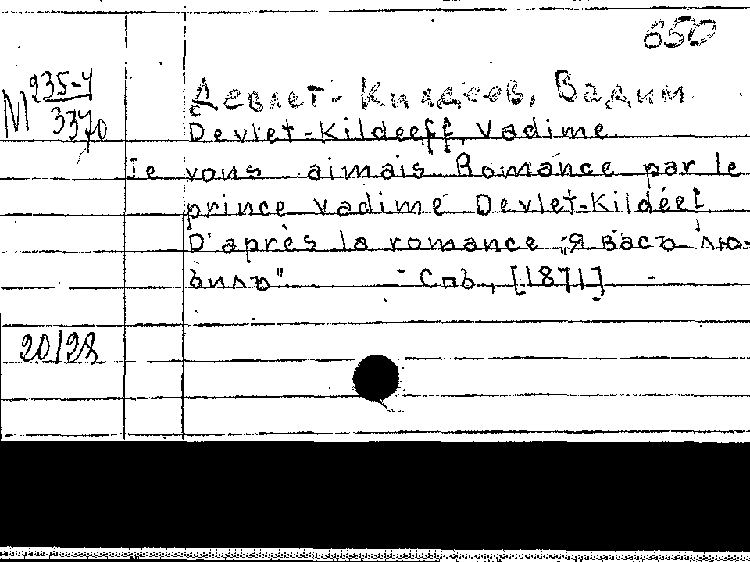 650
М 235-4
3370
Девлет-Килдеев, Вадим
Devlet-Kildeeff, Vadime
Je vous aimais Romance par le
prince Vadime Devlet-Kildéef.
D'après la romance „Я васъ лю-
билъ". - Спб., [1871] -
20/28